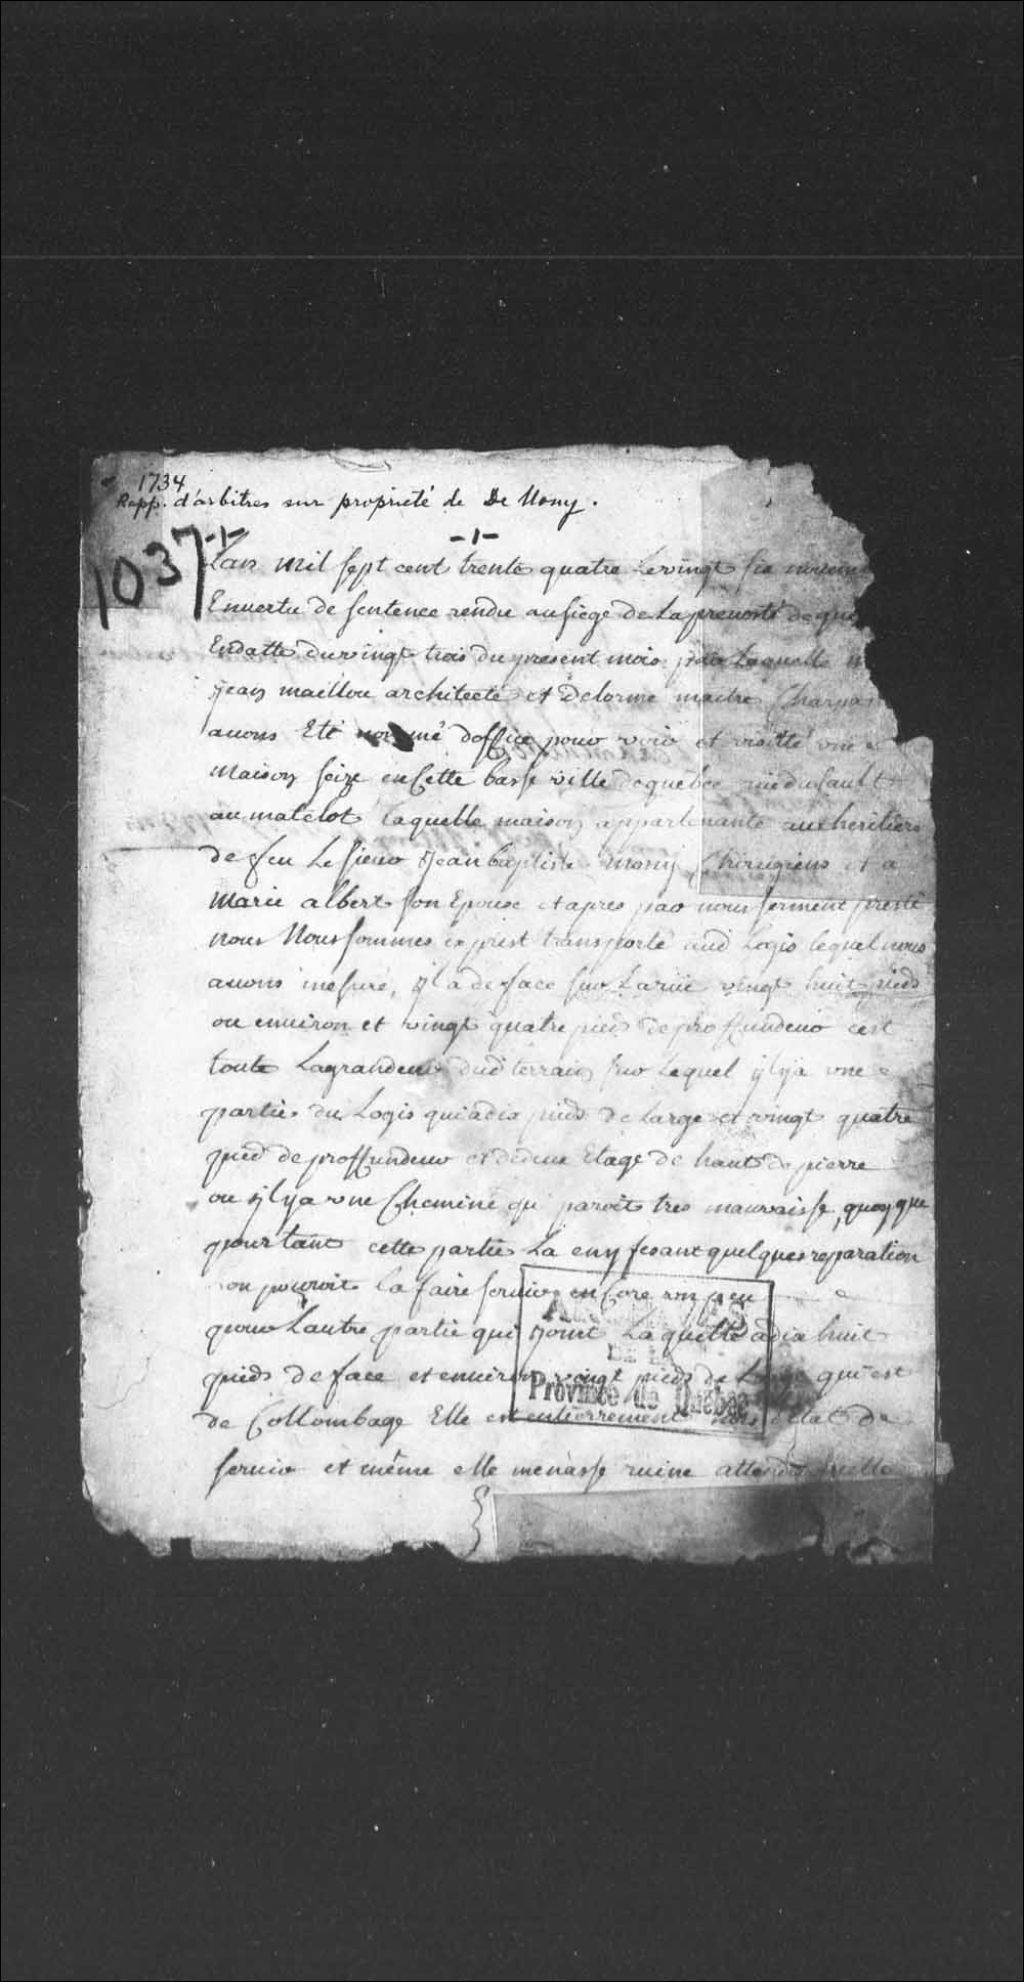 1734
Rapp. d'arbitres sur propriété de De Mony.
1037 -1- -1-
Lan mil sept cent trente quatre Le vingt six novem
En vertu de sentence rendu au siege de La prevosté de que
En datte du vingt trois du present mois par Laquelle n
jean maillou architecte et Delorme maitre Charpan
avons Eté nommé doffice pour voir et visitté vne
maison seize en Cette basse ville de quebec rue du sault
au matelot laquelle maison appartenante aux heritiers
de feu Le sieur jean baptiste mony Chirugiens et a
marie albert son Epouse et apres par nous serment presté
nous Nous sommes exprest transporté aud Logis lequel nous
avons mesuré, yl a de face sur La rüe vingt huit pieds
ou environ et vingt quatre pieds de proffundeur cest
toute Lagrandeur dud terrain sur Lequel yl ya vne
partie du Logis qui a dix pieds de Large et vingt quatre
pied de proffundeur et de deux Etage de haut de pierre
ou yl ya vne Cheminé qui paroit tres mauvaisse, quoy que
pourtant cette partie La en y fesant quelques reparation
on pouroit la faire servir en Core vn peu
pour Lautre partie qui joint Laquelle a dix huit
pieds de face et environ vingt pieds de Large qui est
de Collombage Elle est entierrement hors d'etat de
servir et même elle menasse ruine attendu quelle
ARCHIVES
DE LA
Province de Québec